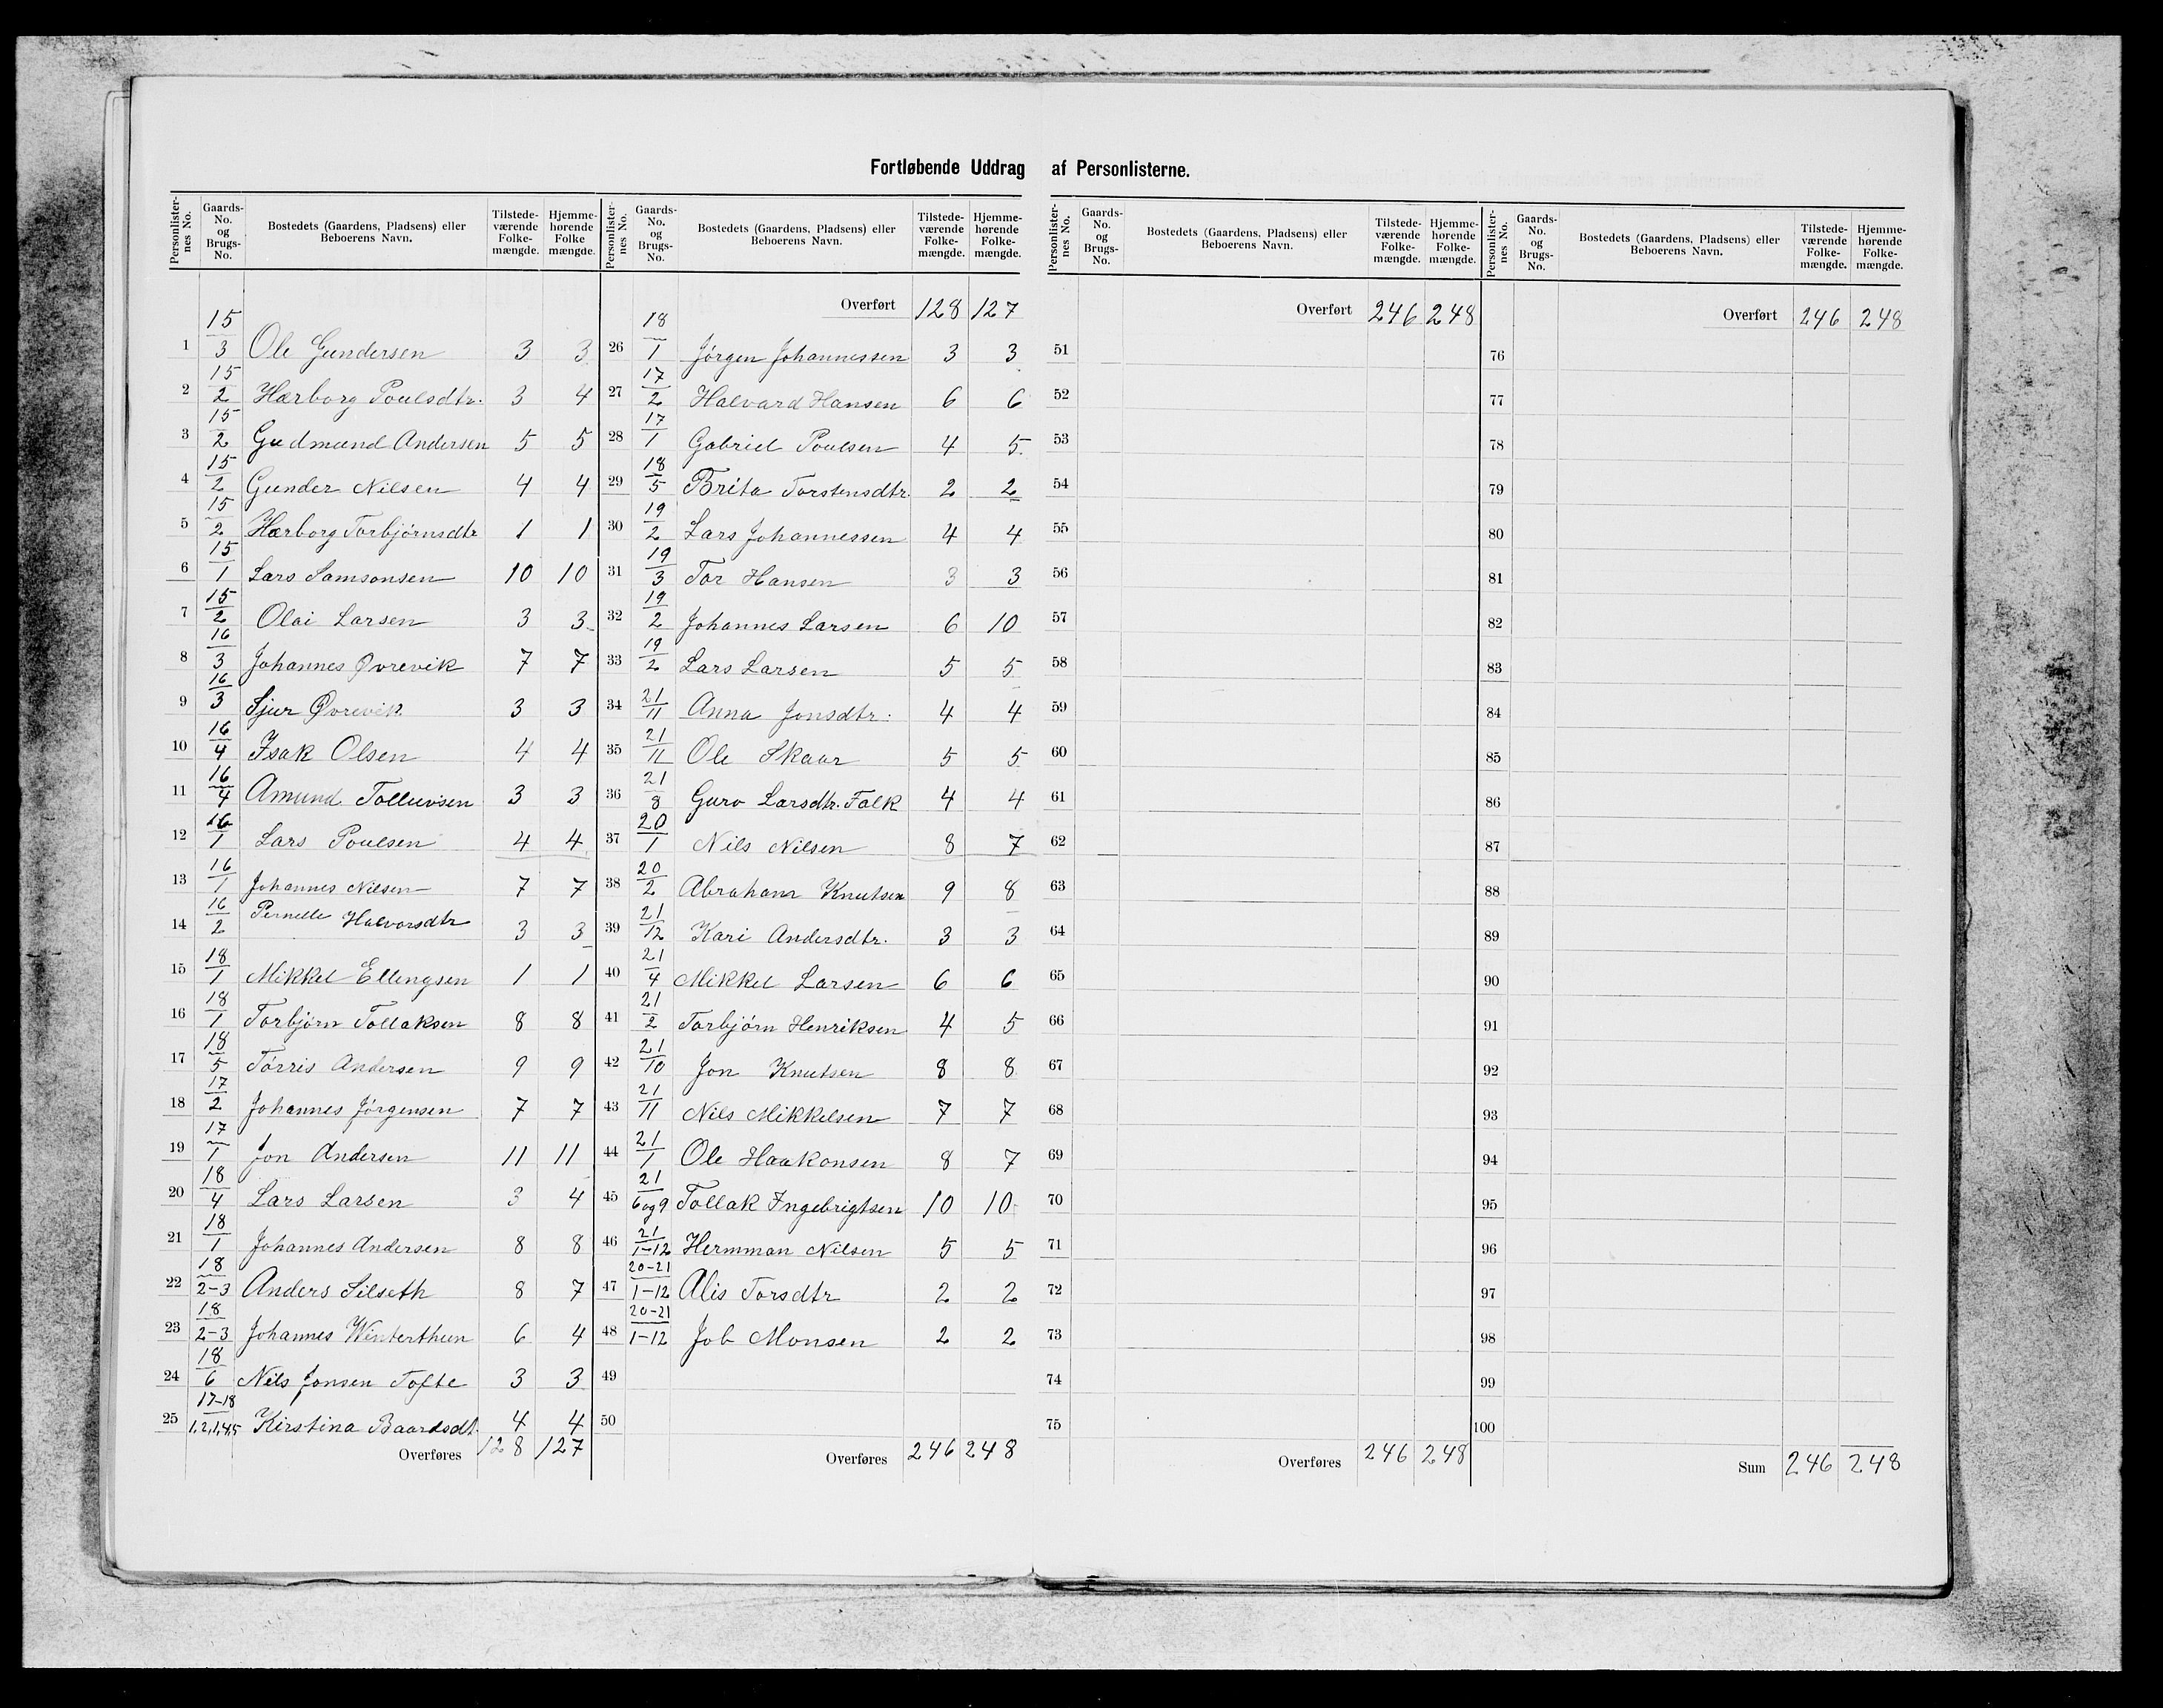 Fortløbende Uddrag af Personlisterne.
Personlisternes No. Gaards-No. og Brugs-No. Bostedets (Gaardens, Pladsens) eller Beboerens Navn. Tilstedeværende Folkemængde. Hjemmehørende Folkemængde.
1 15/3 Ole Gundersen 3 3
2 15/2 Hærborg Poulsdtr. 3 4
3 15/2 Gudmund Andersen 5 5
4 15/2 Gunder Nilsen 4 4
5 15/2 Hærborg Torbjörnsdtr 1 1
6 15/1 Lars Samsonsen 10 10
7 15/2 Olai Larsen 3 3
8 16/3 Johannes Øvrevik 7 7
9 16/3 Sjur Øvrevik 3 3
10 16/4 Isak Olsen 4 4
11 16/4 Amund Tollevsen 3 3
12 16/1 Lars Poulsen 4 4
13 16/1 Johannes Nilsen 7 7
14 16/2 Pernelle Halvorsdtr 3 3
15 18/1 Mikkel Ellingsen 1 1
16 18/1 Torbjörn Tollaksen 8 8
17 18/5 Törris Andersen 9 9
18 17/2 Johannes Jörgensen 7 7
19 17/1 Jon Andersen 11 11
20 18/4 Lars Larsen 3 4
21 18/1 Johannes Andersen 8 8
22 18/2-3 Anders Silseth 8 7
23 18/2-3 Johannes Winterthun 6 4
24 18/6 Nils Jonsen Tofte 3 3
25 17-18/1,2,1,4,5 Kirstina Baardsdt. 4 4
Overføres 128 127
Personlisternes No. Gaards-No. og Brugs-No. Bostedets (Gaardens, Pladsens) eller Beboerens Navn. Tilstedeværende Folkemængde. Hjemmehørende Folkemængde.
Overført 128 127
26 18/1 Jörgen Johannessen 3 3
27 17/2 Halvard Hansen 6 6
28 17/1 Gabriel Poulsen 4 5
29 18/5 Brita Torstensdtr. 2 2
30 19/2 Lars Johannessen 4 4
31 19/3 Tor Hansen 3 3
32 19/2 Johannes Larsen 6 10
33 19/2 Lars Larsen 5 5
34 21/11 Anna Jonsdtr. 4 4
35 21/11 Ole Skaar 5 5
36 21/8 Guro Larsdtr. Falk 4 4
37 20/1 Nils Nilsen 8 7
38 20/2 Abraham Knutsen 9 8
39 21/12 Kari Andersdtr. 3 3
40 21/4 Mikkel Larsen 6 6
41 21/2 Torbjörn Henriksen 4 5
42 21/10 Jon Knutsen 8 8
43 21/11 Nils Mikkelsen 7 7
44 21/1 Ole Haakonsen 8 7
45 21/6og9 Tollak Ingebrigtsen 10 10
46 21/1-12 Hermman Nilsen 5 5
47 20-21/1-12 Alis Torsdtr 2 2
48 20-21/1-12 Job Monsen 2 2
49
50
Overføres 246 248
Personlisternes No. Gaards-No. og Brugs-No. Bostedets (Gaardens, Pladsens) eller Beboerens Navn. Tilstedeværende Folkemængde. Hjemmehørende Folkemængde.
Overført 246 248
51
52
53
54
55
56
57
58
59
60
61
62
63
64
65
66
67
68
69
70
71
72
73
74
75
Overføres 246 248
Personlisternes No. Gaards-No. og Brugs-No. Bostedets (Gaardens, Pladsens) eller Beboerens Navn. Tilstedeværende Folkemængde. Hjemmehørende Folkemængde.
Overført 246 248
76
77
78
79
80
81
82
83
84
85
86
87
88
89
90
91
92
93
94
95
96
97
98
99
100
Sum 246 248